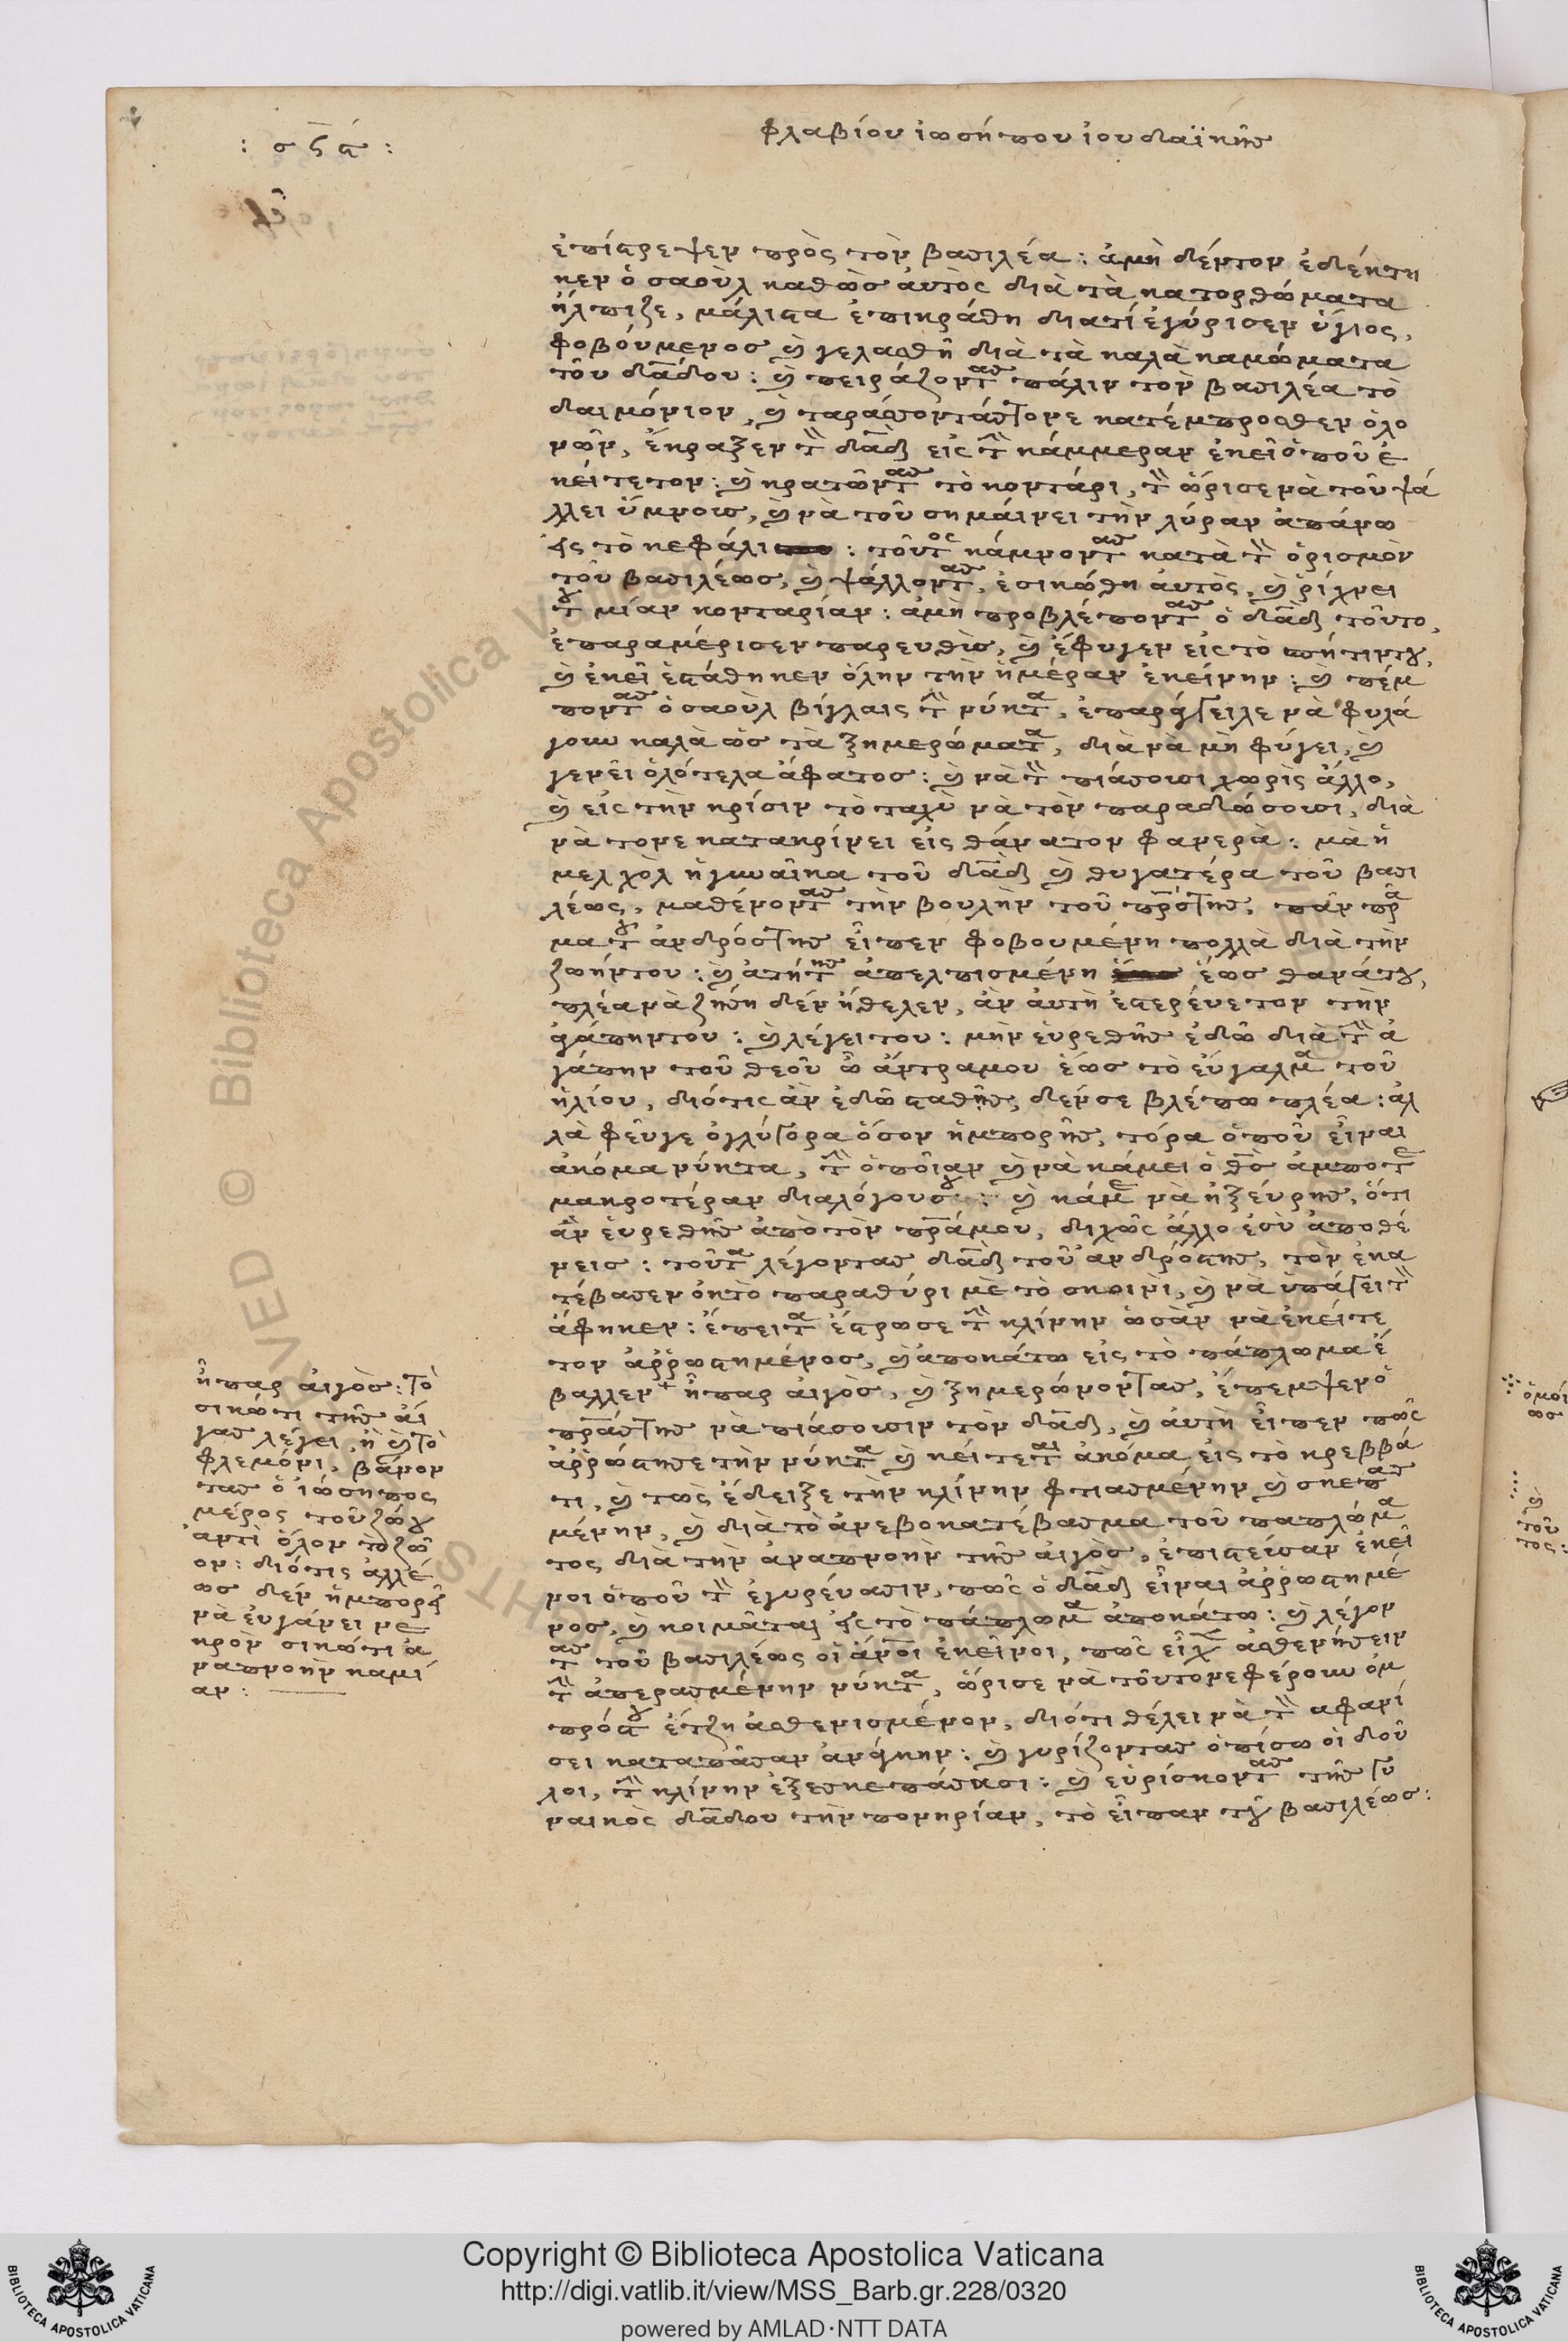 : σϛα :
φλαβίου ἰωσήπου ἰουδαϊκῆς
ἐπίστρεψεν πρὸς τὸν βασιλέα : ἀμὴ δέντον ἐδέχτη
κεν ὁ σαοὺλ καθὼς αὐτὸς διὰ τὰ κατορθώματα
ἤλπιζε, μάλιστα ἐπικράθη διατί ἐγύρισεν ὕγιος,
φοβούμενος καὶ γελασθῆ διὰ τὰ καλὰ καμώματα
τοῦ δᾱδου : καὶ πειράζοντας πάλιν τὸν βασιλέα τὸ
δαιμόνιον, καὶ ταράσσοντάςτονε κατέμπροσθεν ὁλο
νῶν, ἔκραξεν τὸν δᾱδ εἰς τὴν κάμμεραν ἐκεῖ ὁποῦ ἐ
κείτετον : καὶ κρατῶντας τὸ κοντάρι, τὸν ὥρισε νὰ τοῦ ψά
λλει ὕμνους, καὶ νὰ τοῦ σημαίνει τὴν λύραν ἀπάνω
εἰς τὸ κεφάλι : τοῦτος κάμνοντας κατὰ τὸν ὁρισμὸν
τοῦ βασιλέως, καὶ ψάλλοντας, ἐσικώθη αὐτὸς, καὶ ῥίχνει
του μίαν κονταρίαν : ἀμὴ προβλέποντας ὁ δᾱδ τοῦτο,
ἐπαραμέρισεν παρευθὺς, καὶ ἔφυγεν εἰς τὸ σπήτιντου,
καὶ ἐκεῖ ἐστάθηκεν ὅλην τὴν ἡμέραν ἐκείνην : καὶ πέμ
ποντας ὁ σαοὺλ βίγλαις τὴν νύκτα, ἐπαράγγειλε νὰ φυλά
γουν καλὰ ὡς τὰ ξημερώματα, διὰ νὰ μὴ φύγει, καὶ
γενεῖ ὁλότελα ἄφατος : καὶ νὰ τὸν πιάσουσι χωρὶς ἄλλο,
καὶ εἰς τὴν κρίσιν τὸ ταχὺ νὰ τὸν παραδώσουσι, διὰ
νὰ τονε κατακρίνει εἰς θάνατον φανερὰ : μὰ ἡ
μελχὸλ ἡ γυναῖκα τοῦ δᾱδ καὶ θυγατέρα τοῦ βασι
λέως, μαθένοντας τὴν βουλὴν τοῦ πρ̅ς της, πᾶν πρᾶ
μα τοῦ ἀνδρόςτης εἶπεν φοβουμένη πολλὰ διὰ τὴν
ζωήντου : καὶ ἀτήτης ἀπελπισμένη ἕως θανάτου,
πλέα νὰ ζήση δὲν ἤθελεν, ἂν αὐτὴ ἐστερένετον τὴν
ἀγάπηντου : καὶ λέγει του : μὴν εὑρεθῆς ἐδῶ διὰ τὴν ἀ
γάπην τοῦ θεοῦ ὦ ἄντραμου ἕως τὸ εὔγαλμα τοῦ
ἡλίου, διότις ἂν ἐδῶ σταθῆς, δένσε βλέπω πλέα : ἀλ
λὰ φεῦγε ὀγλύγορα ὅσον ἠμπορῆς, τόρα ὁποῦ εἶναι
ἀκόμα νύκτα, τὴν ὁποῖαν καὶ νὰ κάμει ὁ θς̅ ἄμποτε
μακροτέραν διαλόγουσου : καὶ κάμε νὰ ἠξεύρης, ὅτι
ἂν εὑρεθῆς ἀπὸ τὸν πρ̅άμου, διχῶς ἄλλο ἐσὺ ἀποθέ
νεις : τοῦτα λέγοντας δᾱδ τοῦ ἀνδρόςτης, τὸν ἐκα
τέβασεν ὀκτὸ παραθύρι μὲ τὸ σκοινὶ, καὶ νὰ ὑπάγει τὸν
ἄφηκεν : ἔπειτα ἔστρωσε τὴν κλίνην ὡσὰν νὰ ἐκείτε
τον ἀῤῥωστημένος, καὶ ἀποκάτω εἰς τὸ πάπλωμα ἔ
βαλλεν + ἧπαρ αἰγὸς, καὶ ξημερώνοντας, ἔπεμψεν ὁ
πρ̅άςτης νὰ πιάσουσιν τὸν δᾱδ, καὶ αὐτὴ εἶπεν πῶς
ἀῤῥώστησε τὴν νύκτα καὶ κείτεται ἀκόμα εἰς τὸ κρεββά
τι, καὶ τως ἔδειξε τὴν κλίνην φτιασμένην καὶ σκεπασ
μένην, καὶ διὰ τὸ ἀνεβοκατέβασμα τοῦ παπλώμα
τος διὰ τὴν ἀναπνοὴν τῆς αἰγὸς, ἐπιστεύσαν ἐκεῖ
νοι ὁποῦ τὸν ἐγυρεύασιν, πῶς ὁ δᾱδ εἶναι ἀῤῥωστημέ
νος, καὶ κοιμᾶται εἰς τὸ πάπλωμα ἀποκάτω : καὶ λέγον
τας τοῦ βασιλέως οἱ ἄν̅οι ἐκεῖνοι, πῶς εἶχεν ἀσθενήσειν
τὴν ἀπερασμένην νύκτα, ὥρισε νὰ τοῦτονε φέρουν ὀμ
πρόςτου ἔτζη ἀσθενισμένον, διότι θέλει νὰ τὸν ἀφανί
σει καταπᾶσαν ἀνάγκην : καὶ γυρίζοντας ὀπίσω οἱ δοῦ
λοι, τὴν κλίνην ἐξεσκεπάσασι : καὶ εὑρίσκοντας τῆς γυ
ναικὸς δᾱδου τὴν πονηρίαν, τὸ εἶπαν τοῦ βασιλέως :
ἧπαρ αἰγὸς : τὸ
σικώτι τῆς αἰ
γὸς λέγει, ἢ καὶ τὸ
φλεμόνι, βάνον
τας ὁ ἰώσηπος
μέρος τοῦ ζώου
ἀντὶ ὅλον τὸ ζῶ
ον : διότις ἀλλέ
ως δὲν ἠμπορεῖ
νὰ εὐγάνει νε
κρὸν σικώτι ἀ
ναπνοὴν καμί
αν :
ὁμοί
ως
καὶ
τοῦ
τος :
Copyright © Biblioteca Apostolica Vaticana
http://digi.vatlib.it/view/MSS_Barb.gr.228/0320
powered by AMLAD·NTT DATA
BIBLIOTECA APOSTOLICA VATICANA
BIBLIOTECA APOSTOLICA VATICANA